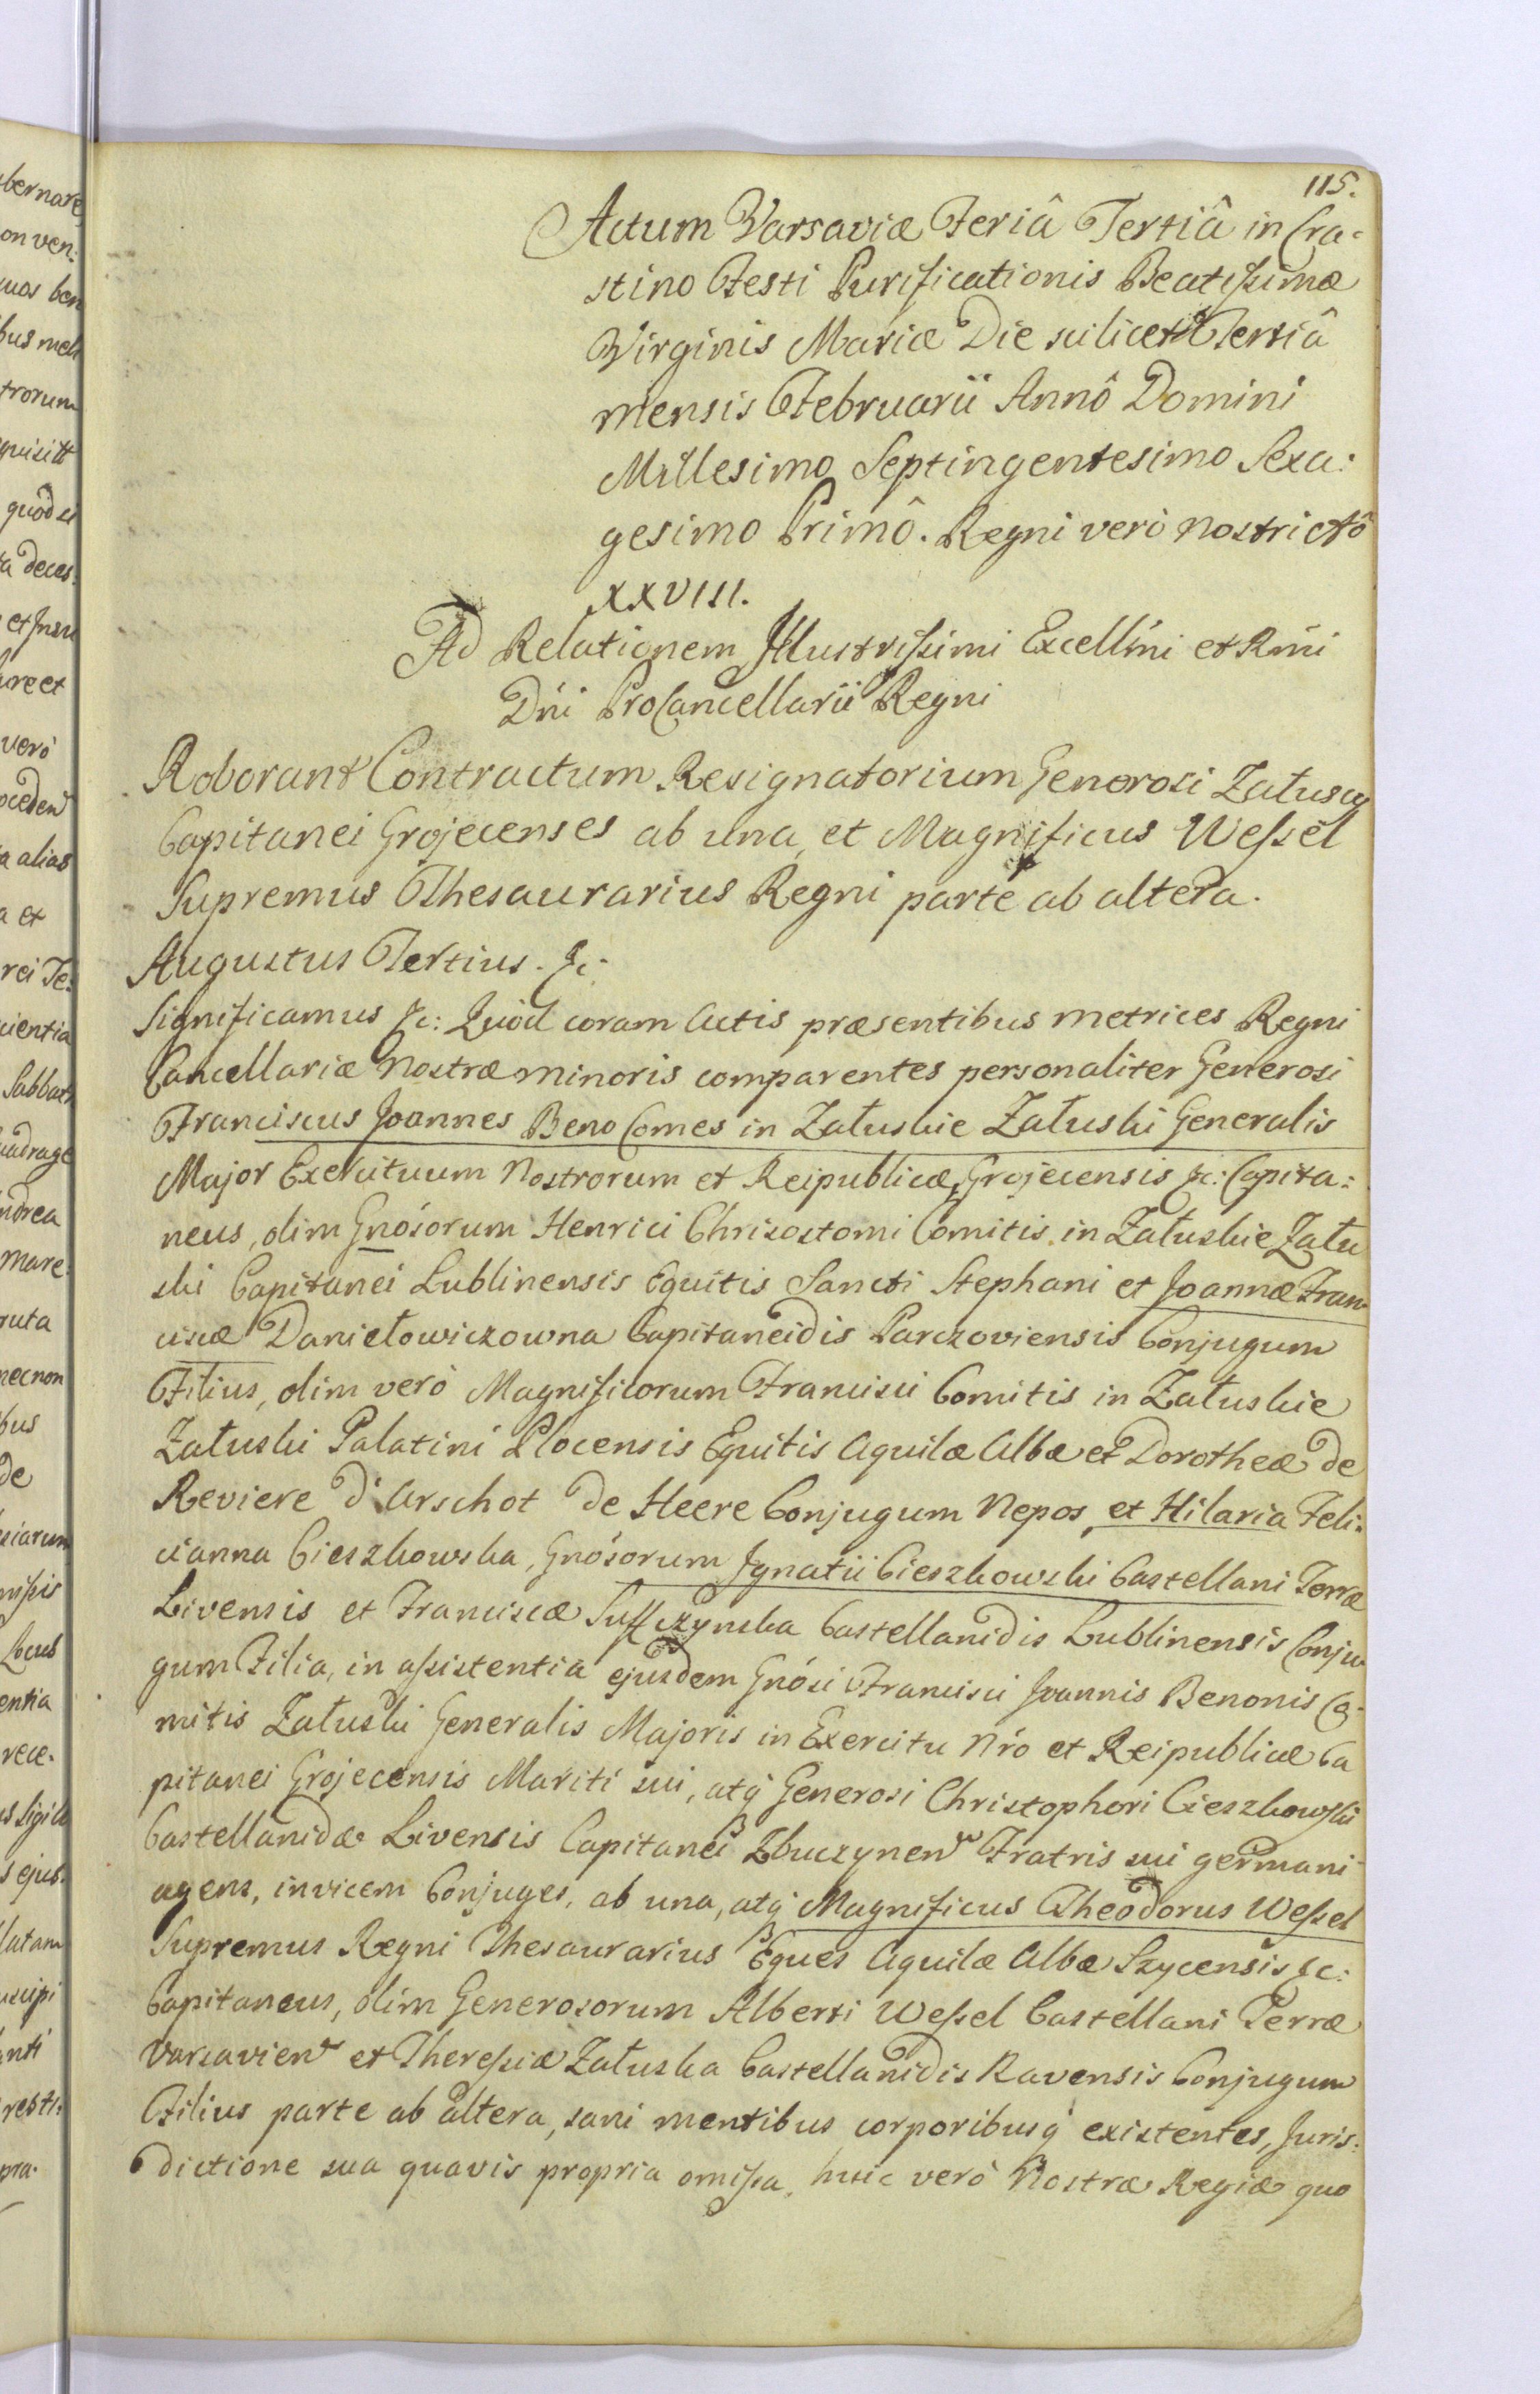 115.
Actum Varsaviæ Feriâ Tertiâ in Cra-
stino Festi Purificationis Beatissimæ
Virginis Mariæ Die scilicet Tertiâ
mensis Februarii Annô Domini
Millesimo Septingentesimo Sexa:
gesimo Primô. Regni verò nostri
XXVIII.
Ad Relationem Illustrissimi Excellmi et Rmi
Dni ProCancellarii Regni
Roborant Contractum Resignatorium Generosi Załuscy
Capitanei Grojecenses ab una, et Magnificus Wessel
Supremus Thesaurarius Regni parte ab altera.
Augustus Tertius. &c.
Significamus &c: Quod coram Actis præsentibus metrices Regni
Cancellariæ Nostræ minoris comparentes personaliter Generosi
Franciscus Joannes Beno Comes in Załuskie Załuski Generalis
Major Exercituum Nostrorum et Reipublicæ, Grojecensis &c: Capita:
neus, olim Gnósorum Henrici Chrisostomi Comitis in Załuskie Zału
ski Capitanei Lublinensis Equitis Sancti Stephani et Joannæ Fran
ciscæ Daniełowiczowna Capitaneidis Parczoviensis Conjugum
Filius, olim verò Magnificorum Francisci Comitis in Załuskie
Załuski Palatini Plocensis Equitis Aquilæ Albæ et Dorotheæ de
Reviere d'Arschot de Heere Conjugum Nepos, et Hilaria Feli:
cianna Cieszkowska, Gnósorum Ignatii Cieszkowski Castellani Terræ
Livensis et Franciscæ Suffczynska Castellanidis Lublinensis Conju
gum Filia, in assistentia ejusdem Gnósi Francisci Joannis Benonis Co-
mitis Załuski Generalis Majoris in Exercitu Nró et Reipublicæ Ca
pitanei Grojecensis Mariti sui, atq́ Generosi Christophori Cieszkowski
Castellanidæ Livensis Capitanei Zbuczynen Fratris sui germani
agens, invicem Conjuges, ab una, atq́ Magnificus Theodorus Wessel
Supremus Regni Thesaurarius Eques Aquilæ Albæ Szycensis &c:
Capitaneus, olim Generosorum Alberti Wessel Castellani Terræ
Varsavien et Theressiæ Załuska Castellanidis Ravensis Conjugum
Filius parte ab altera, sani mentibus corporibusq́ existentes, Juris:
dictione sua quavis propria omissa, huic verò Nostræ Regiæ quo